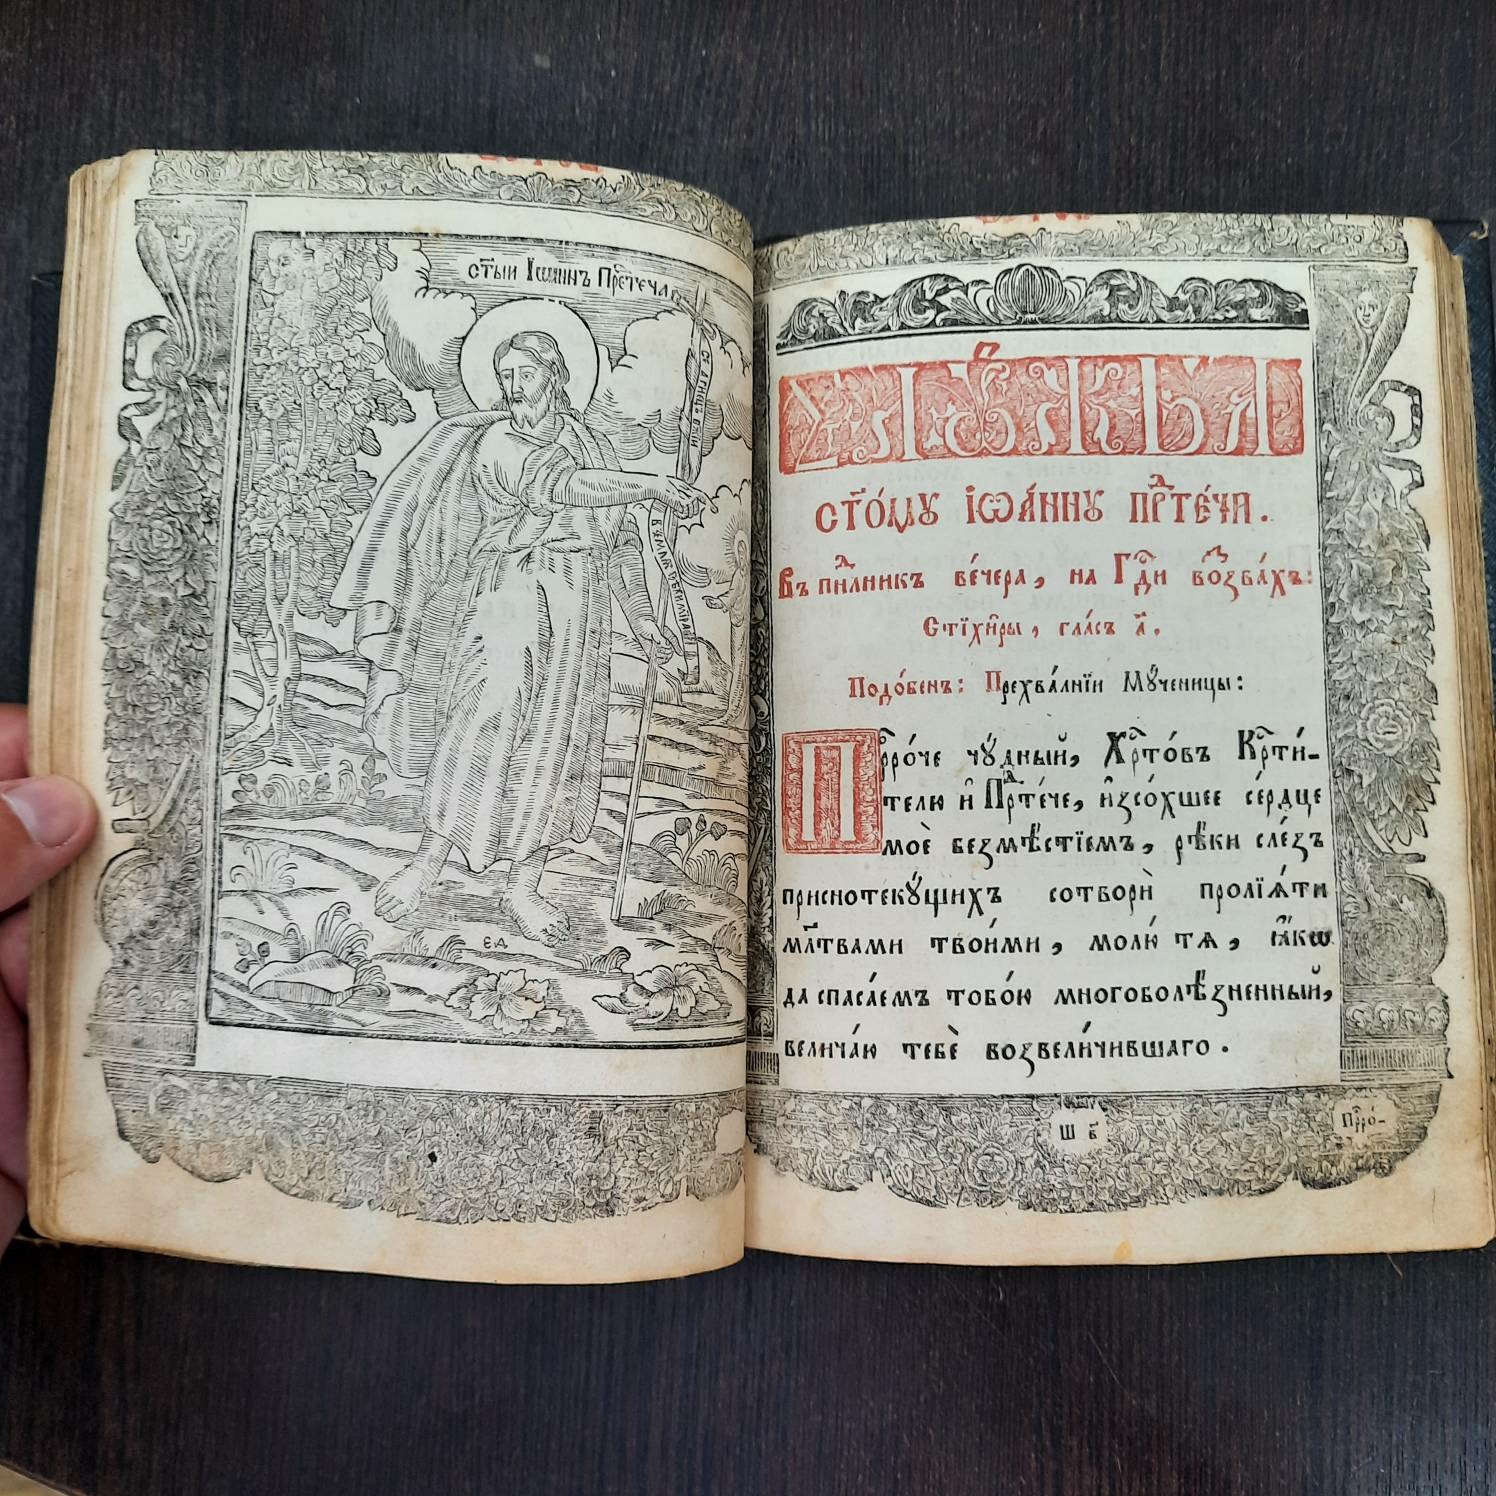 ст҃ыи Іѡаннъ Прⷣетеча
се агнецъ бж҃ии
Е Д
СЛꙋЖБА
ст҃о́мꙋ іѡа́ннꙋ прⷣте́чи.
Въ пⷩ҇лникъ ве́чера, на Гдⷭ҇и воззва́хъ:
Стїхи̑ры, гла́съ а҃.
Подо́бенъ: Прехва́лнїи Мꙋ́ченицы:
Прⷪ҇ро́че чꙋ́дный, Хрⷭ҇то́въ Крⷭ҇ти́-
телю и҆ Прⷣте́че, и҆зсо́хшее се́рдце
моѐ безмѣ́стїемъ, рѣ́ки сле́зъ
приснотекꙋ́щихъ сотворѝ пролїѧ́ти
мл҃твами твои́ми, молю́ тѧ, ꙗ҆́кѡ
да спаса́емъ тобо́ю многоболѣ́зненный,
велича́ю тебѐ возвели́чившаго.
Ш в҃
Прⷪ҇ро́-